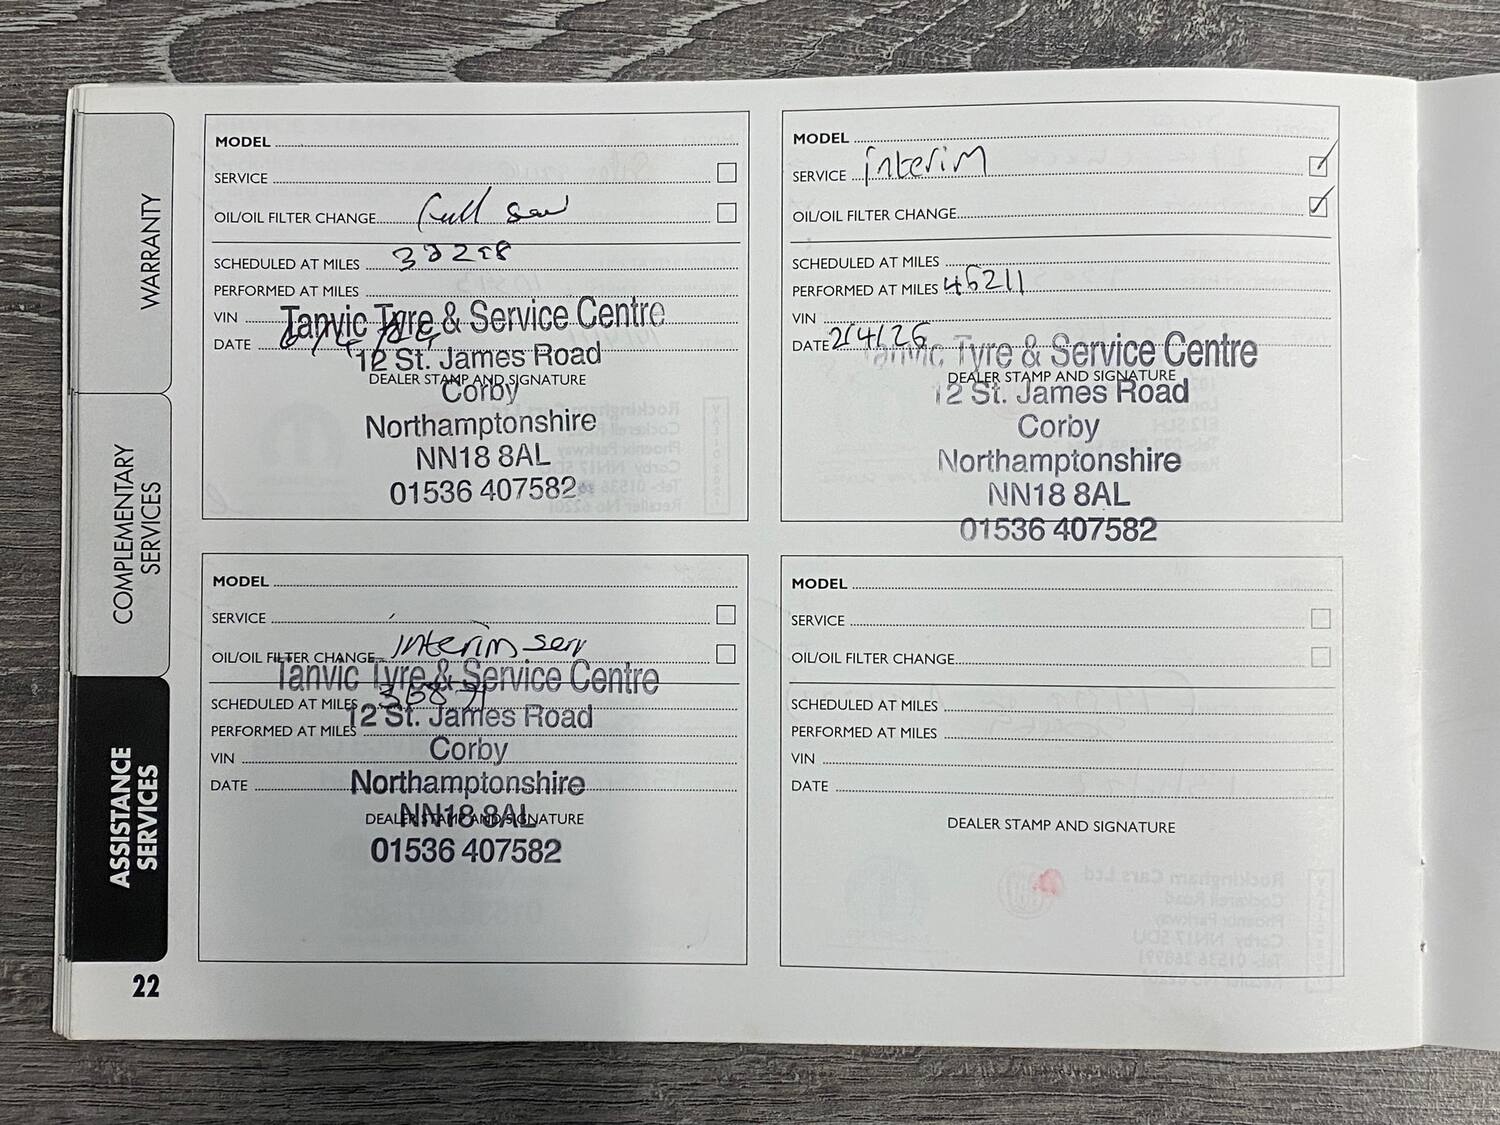 WARRANTY
COMPLEMENTARY
SERVICES
ASSISTANCE
SERVICES
22
MODEL
SERVICE
OIL/OIL FILTER CHANGE Full
SCHEDULED AT MILES
PERFORMED AT MILES
VIN
DATE
DEALER STAMP AND SIGNATURE
Tanvic Tyre & Service Centre
12 St. James Road
Corby
Northamptonshire
NN18 8AL
01536 407582
MODEL
SERVICE interim
OIL/OIL FILTER CHANGE
SCHEDULED AT MILES
PERFORMED AT MILES 46211
VIN
DATE 2/4/26
DEALER STAMP AND SIGNATURE
Tanvic Tyre & Service Centre
12 St. James Road
Corby
Northamptonshire
NN18 8AL
01536 407582
MODEL
SERVICE
OIL/OIL FILTER CHANGE interim serv
SCHEDULED AT MILES
PERFORMED AT MILES
VIN
DATE
DEALER STAMP AND SIGNATURE
Tanvic Tyre & Service Centre
12 St. James Road
Corby
Northamptonshire
NN18 8AL
01536 407582
MODEL
SERVICE
OIL/OIL FILTER CHANGE
SCHEDULED AT MILES
PERFORMED AT MILES
VIN
DATE
DEALER STAMP AND SIGNATURE